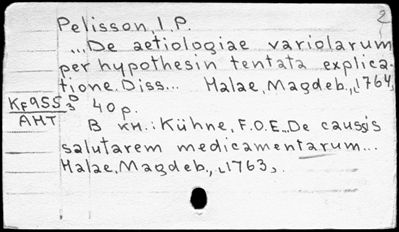 2
Pelisson, I.P.
...De aetiologiae variolarum
per hypothesin tentata explica-
tione. Diss... Halae, Magdeb., 1764,
Kf955 40 p.
AHT
В кн.: Kühne, F.O.E. De causis
salutarem medicamentarum...
Halae, Magdeb., 1763,.